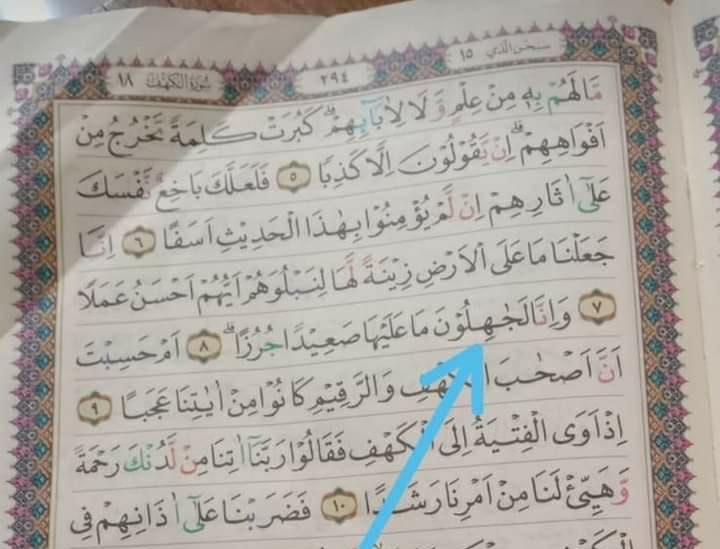 سبحن الذي ١٥ ٢٩٤ سورة الكهف ١٨
مَّا لَهُمْ بِهٖ مِنْ عِلْمٍ وَّلَا لِاٰبَاۤىِٕهِمْۗ كَبُرَتْ كَلِمَةً تَخْرُجُ مِنْ
اَفْوَاهِهِمْۗ اِنْ يَّقُوْلُوْنَ اِلَّا كَذِبًا ٥ فَلَعَلَّكَ بَاخِعٌ نَّفْسَكَ
عَلٰٓى اٰثَارِهِمْ اِنْ لَّمْ يُؤْمِنُوْا بِهٰذَا الْحَدِيْثِ اَسَفًا ٦ اِنَّا
جَعَلْنَا مَا عَلَى الْاَرْضِ زِيْنَةً لَّهَا لِنَبْلُوَهُمْ اَيُّهُمْ اَحْسَنُ عَمَلًا
٧ وَاِنَّا لَجٰهِلُوْنَ مَا عَلَيْهَا صَعِيْدًا جُرُزًاۗ ٨ اَمْ حَسِبْتَ
اَنَّ اَصْحٰبَ الْكَهْفِ وَالرَّقِيْمِ كَانُوْا مِنْ اٰيٰتِنَا عَجَبًا ٩
اِذْ اَوَى الْفِتْيَةُ اِلَى الْكَهْفِ فَقَالُوْا رَبَّنَآ اٰتِنَا مِنْ لَّدُنْكَ رَحْمَةً
وَّهَيِّئْ لَنَا مِنْ اَمْرِنَا رَشَدًا ١٠ فَضَرَبْنَا عَلٰٓى اٰذَانِهِمْ فِى